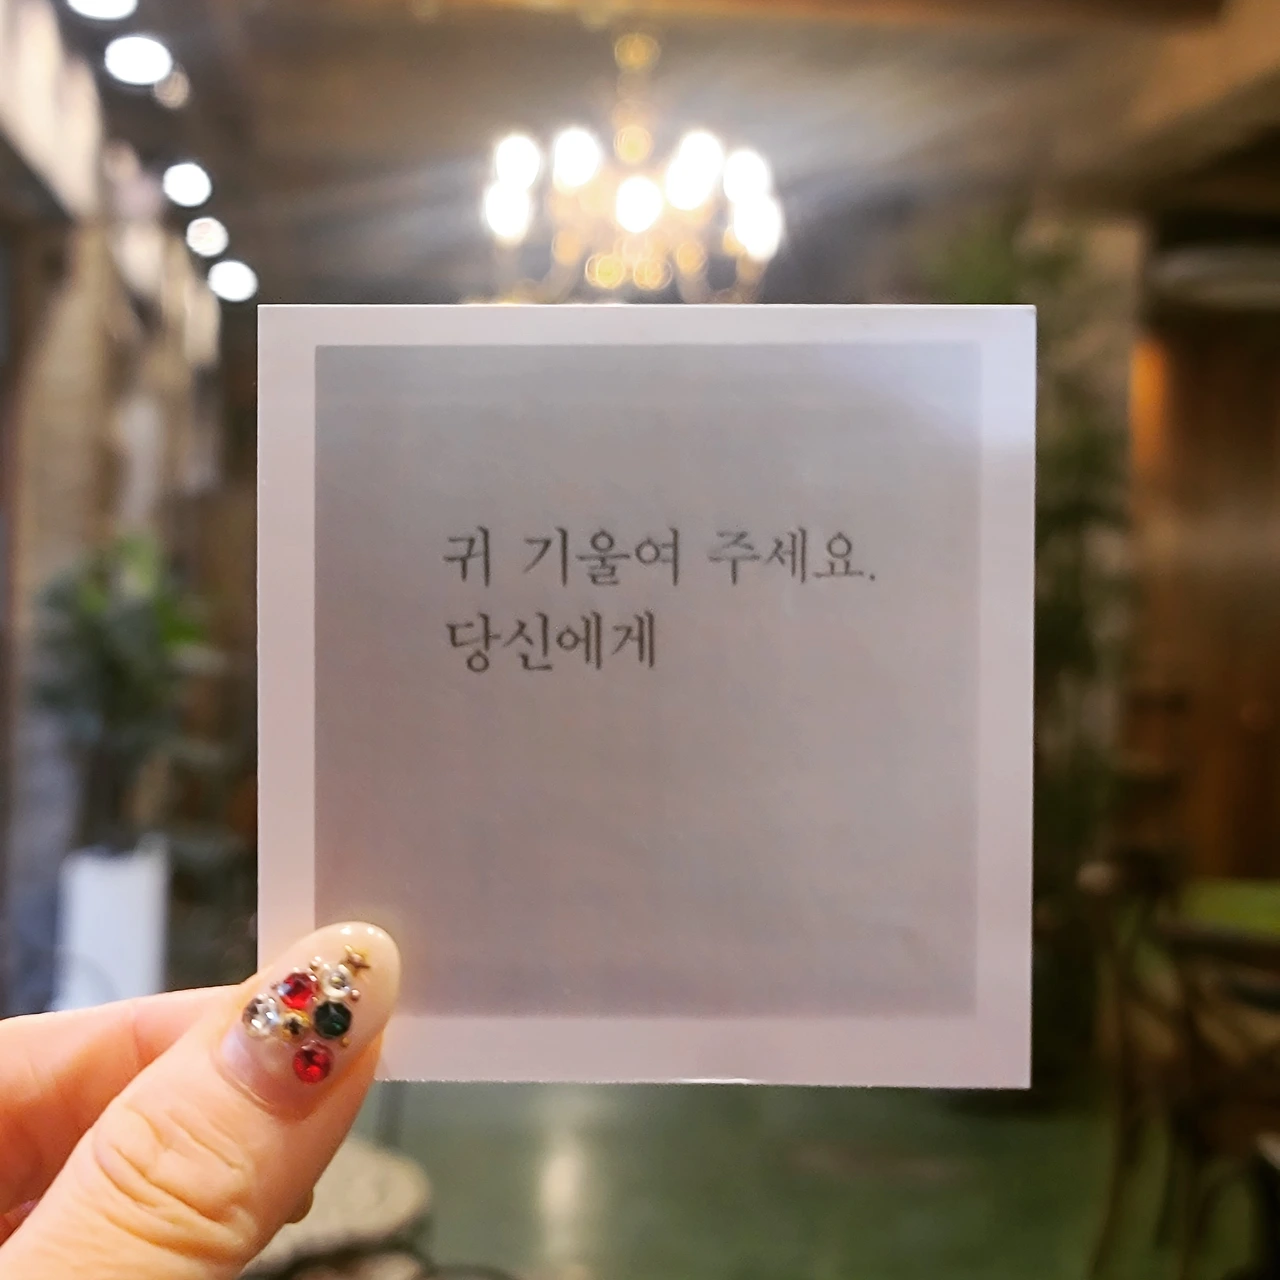 귀 기울여 주세요.
당신에게